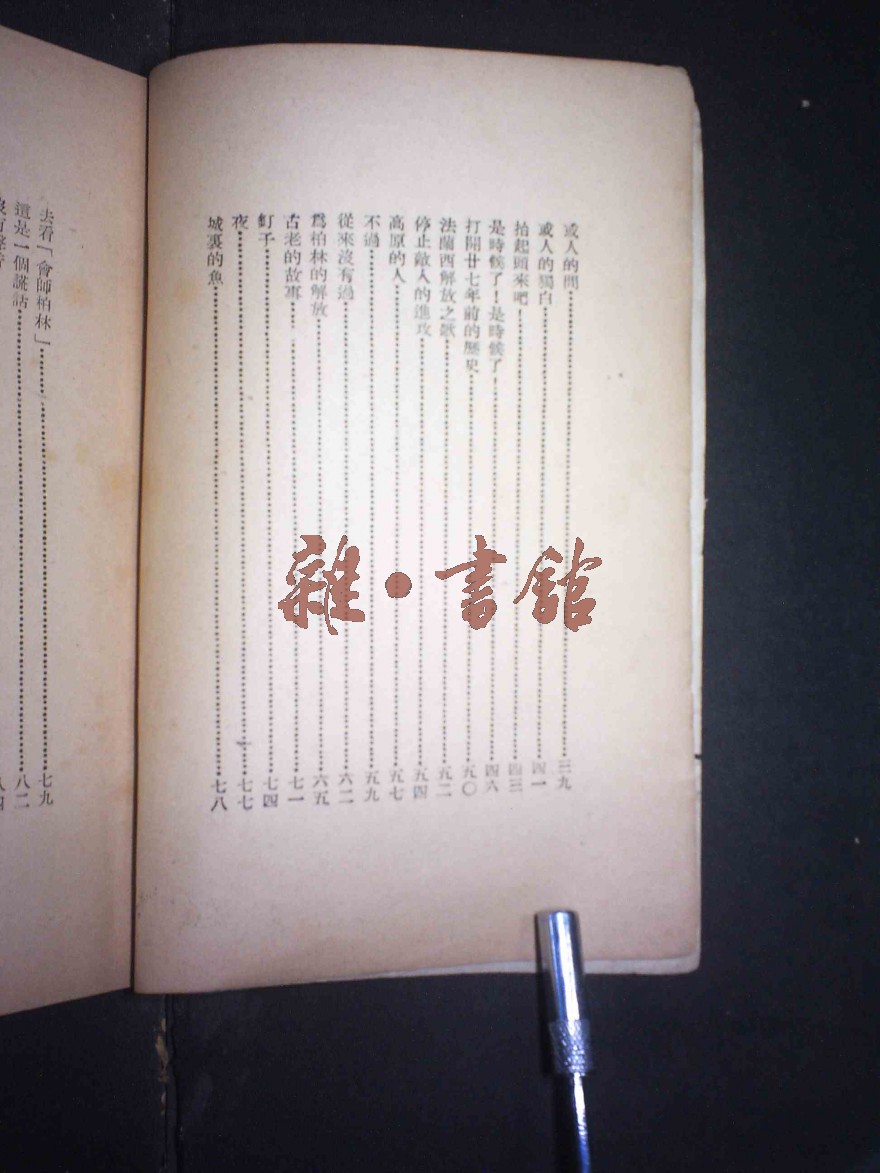 或人的問……三九
或人的獨白……四一
抬起頭來吧……四三
是時候了！是時候了！……四六
打開廿七年前的歷史……五〇
法蘭西解放之歌……五二
停止敵人的進攻……五四
高原的人……五七
不過……五九
從來沒有過……六二
爲柏林的解放……六五
古老的故事……七一
釘子……七四
夜……七七
城裏的魚……七八
去看「會師柏林」……七九
這是一個謊話……八二
八四
雜·書館